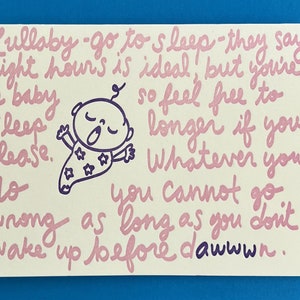 lullaby-go to sleep-they say
eight hours is ideal, but you're
a baby so feel free to
sleep longer if you
please. Whatever you
do you cannot go
wrong as long as you don't
wake up before dawwwn.